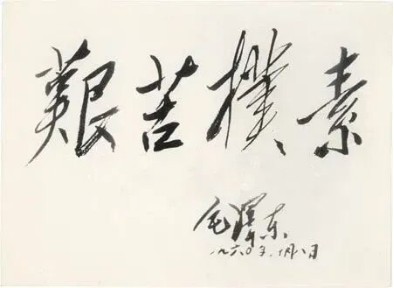 艱苦樸素
毛澤东
一九六〇年一月八日